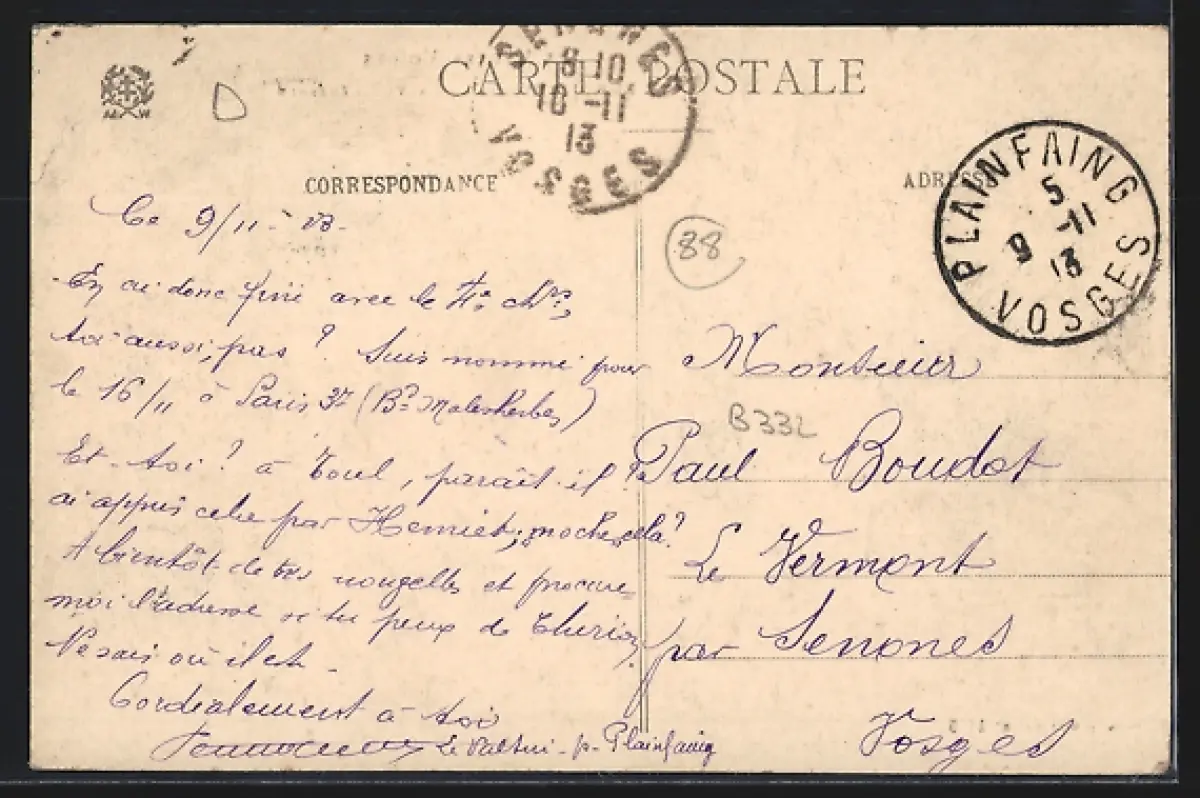 CARTE POSTALE
SENONES
8 10
10 -11
13
VOSGES
D
CORRESPONDANCE
ADRESSE
PLAINFAING
5
9 -11
13
VOSGES
88
Ce 9/11-13-
En ai donc fini avec le
toi aussi, pas? Suis nommé pour
le 16/11 à Paris (Bd Malesherbes)
Et-toi? à Toul, paraît-il?
ai appris cela par moche, cela?
A bientôt de tes nouvelles et procure
moi l'adresse si tu peux de
Ne sais où il est.
Cordialement à toi
Le Valtin - p. Plainfaing
Monsieur
B332
Paul Boudot
Le Vermont
par Senones
Vosges